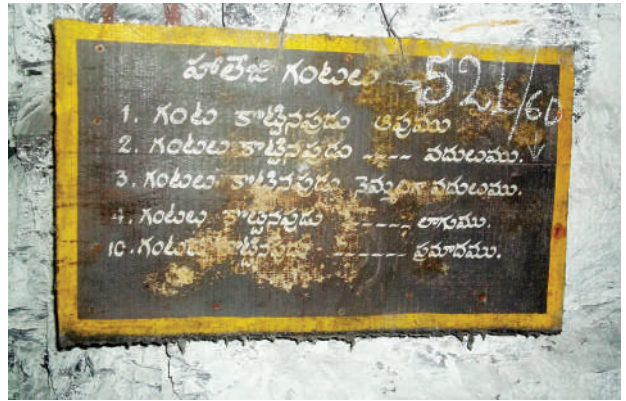 హాలేజి గంటలు → 521/60
1. గంట కొట్టినపుడు ఆపుము
2. గంటలు కొట్టినపుడు ---- వదులుము.
3. గంటలు కొట్టినపుడు నెమ్మదిగా వదులుము.
4. గంటలు కొట్టినపుడు ----- లాగుము.
10. గంటలు కొట్టినపుడు ------- ప్రమాదము.